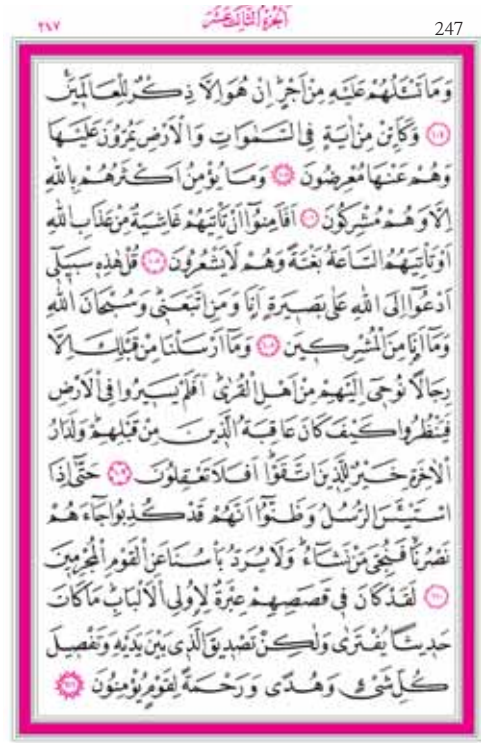 ٢٤٧ الجزء الثالث عشر 247
وَمَا تَسْـَٔلُهُمْ عَلَيْهِ مِنْ اَجْرٍ اِنْ هُوَ اِلَّا ذِكْرٌ لِلْعَالَمِينَ
﴿١٠٤﴾ وَكَاَيِّنْ مِنْ اٰيَةٍ فِي السَّمٰوَاتِ وَالْاَرْضِ يَمُرُّونَ عَلَيْهَا
وَهُمْ عَنْهَا مُعْرِضُونَ ﴿١٠٥﴾ وَمَا يُؤْمِنُ اَكْثَرُهُمْ بِاللّٰهِ
اِلَّا وَهُمْ مُشْرِكُونَ ﴿١٠٦﴾ اَفَاَمِنُٓوا اَنْ تَأْتِيَهُمْ غَاشِيَةٌ مِنْ عَذَابِ اللّٰهِ
اَوْ تَأْتِيَهُمُ السَّاعَةُ بَغْتَةً وَهُمْ لَا يَشْعُرُونَ ﴿١٠٧﴾ قُلْ هٰذِهِ سَبِيلِٓي
اَدْعُٓوا اِلَى اللّٰهِ عَلٰى بَصِيرَةٍ اَنَا وَمَنِ اتَّبَعَنِي وَسُبْحَانَ اللّٰهِ
وَمَٓا اَنَا مِنَ الْمُشْرِكِينَ ﴿١٠٨﴾ وَمَٓا اَرْسَلْنَا مِنْ قَبْلِكَ اِلَّا
رِجَالًا نُوحِٓي اِلَيْهِمْ مِنْ اَهْلِ الْقُرٰى اَفَلَمْ يَسِيرُوا فِي الْاَرْضِ
فَيَنْظُرُوا كَيْفَ كَانَ عَاقِبَةُ الَّذِينَ مِنْ قَبْلِهِمْ وَلَدَارُ
الْاٰخِرَةِ خَيْرٌ لِلَّذِينَ اتَّقَوْا اَفَلَا تَعْقِلُونَ ﴿١٠٩﴾ حَتّٰٓى اِذَا
اسْتَيْـَٔسَ الرُّسُلُ وَظَنُّٓوا اَنَّهُمْ قَدْ كُذِبُوا جَٓاءَهُمْ
نَصْرُنَا فَنُجِّيَ مَنْ نَشَٓاءُ وَلَا يُرَدُّ بَأْسُنَا عَنِ الْقَوْمِ الْمُجْرِمِينَ
﴿١١٠﴾ لَقَدْ كَانَ فِي قَصَصِهِمْ عِبْرَةٌ لِاُولِي الْاَلْبَابِ مَا كَانَ
حَدِيثًا يُفْتَرٰى وَلٰكِنْ تَصْدِيقَ الَّذِي بَيْنَ يَدَيْهِ وَتَفْصِيلَ
كُلِّ شَيْءٍ وَهُدًى وَرَحْمَةً لِقَوْمٍ يُؤْمِنُونَ ﴿١١١﴾